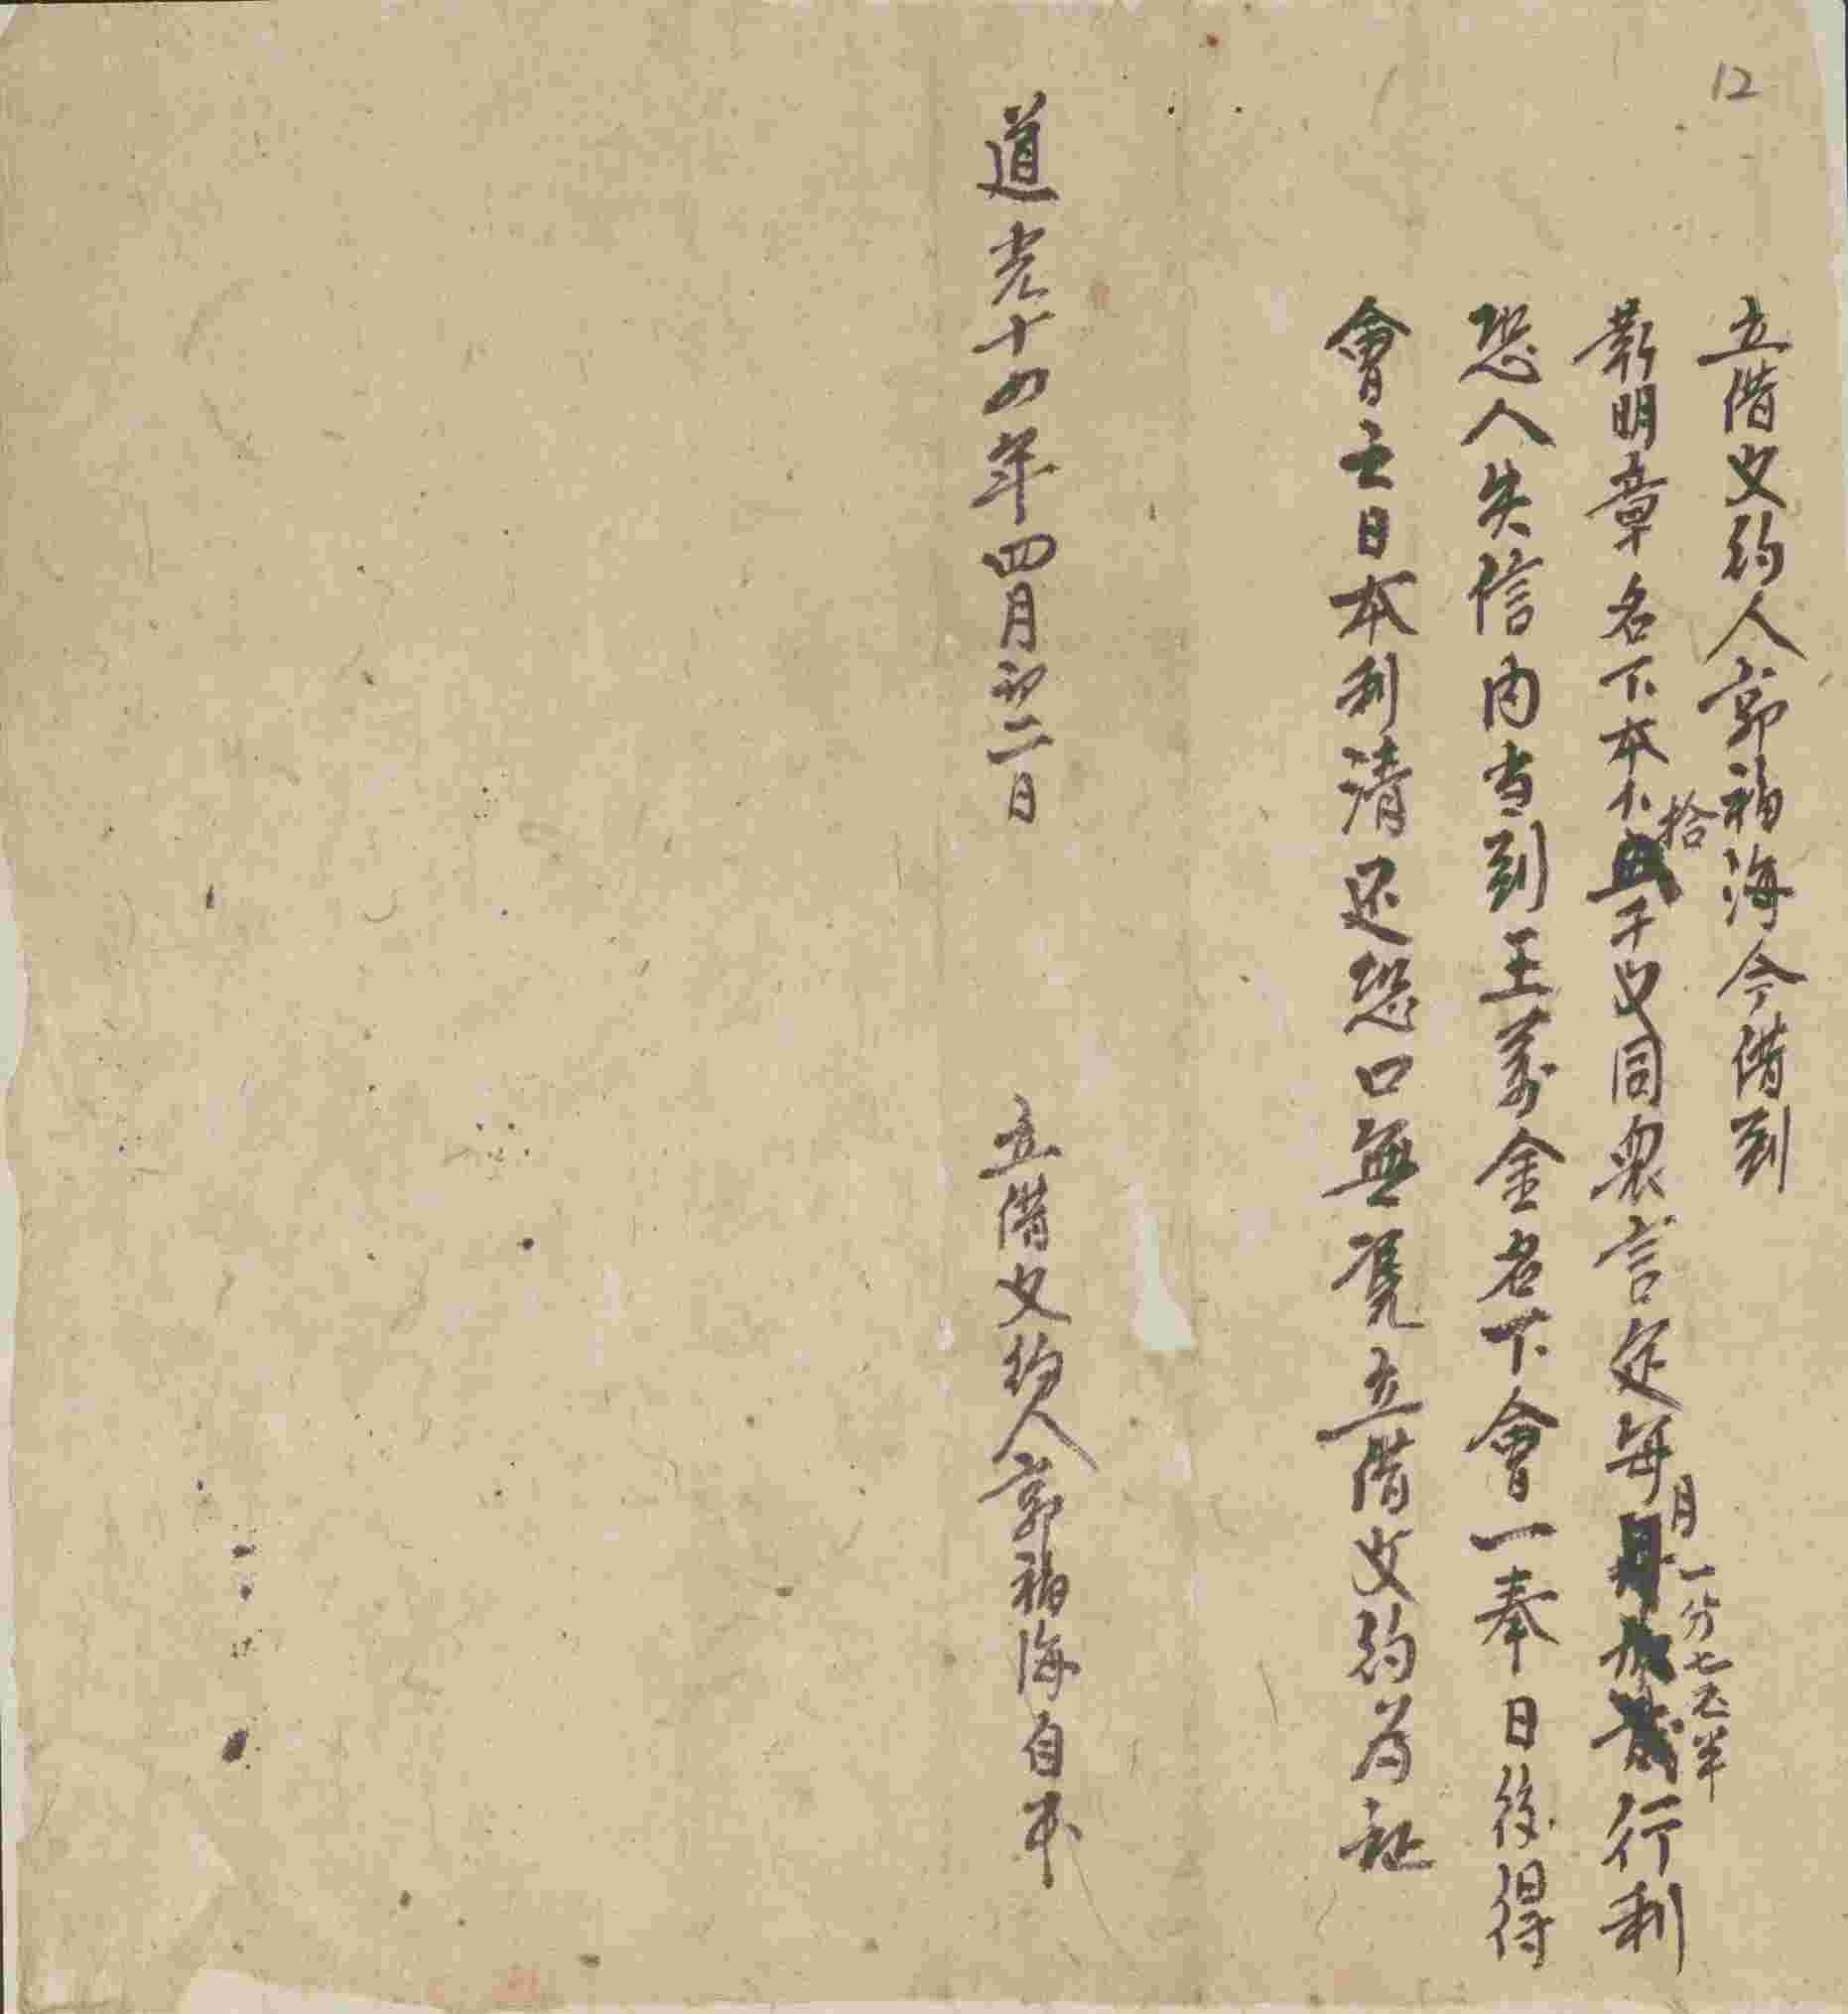 12
立借文約人郭福海今借到
靳明章名下本小拾千文同衆言定每月一分七厘半行利
恐人失信内当到王萬金名下會一奉日後得
會之日本利清还恐口無凭立借文約為証
道光十四年四月初二日
立借文約人郭福海自平